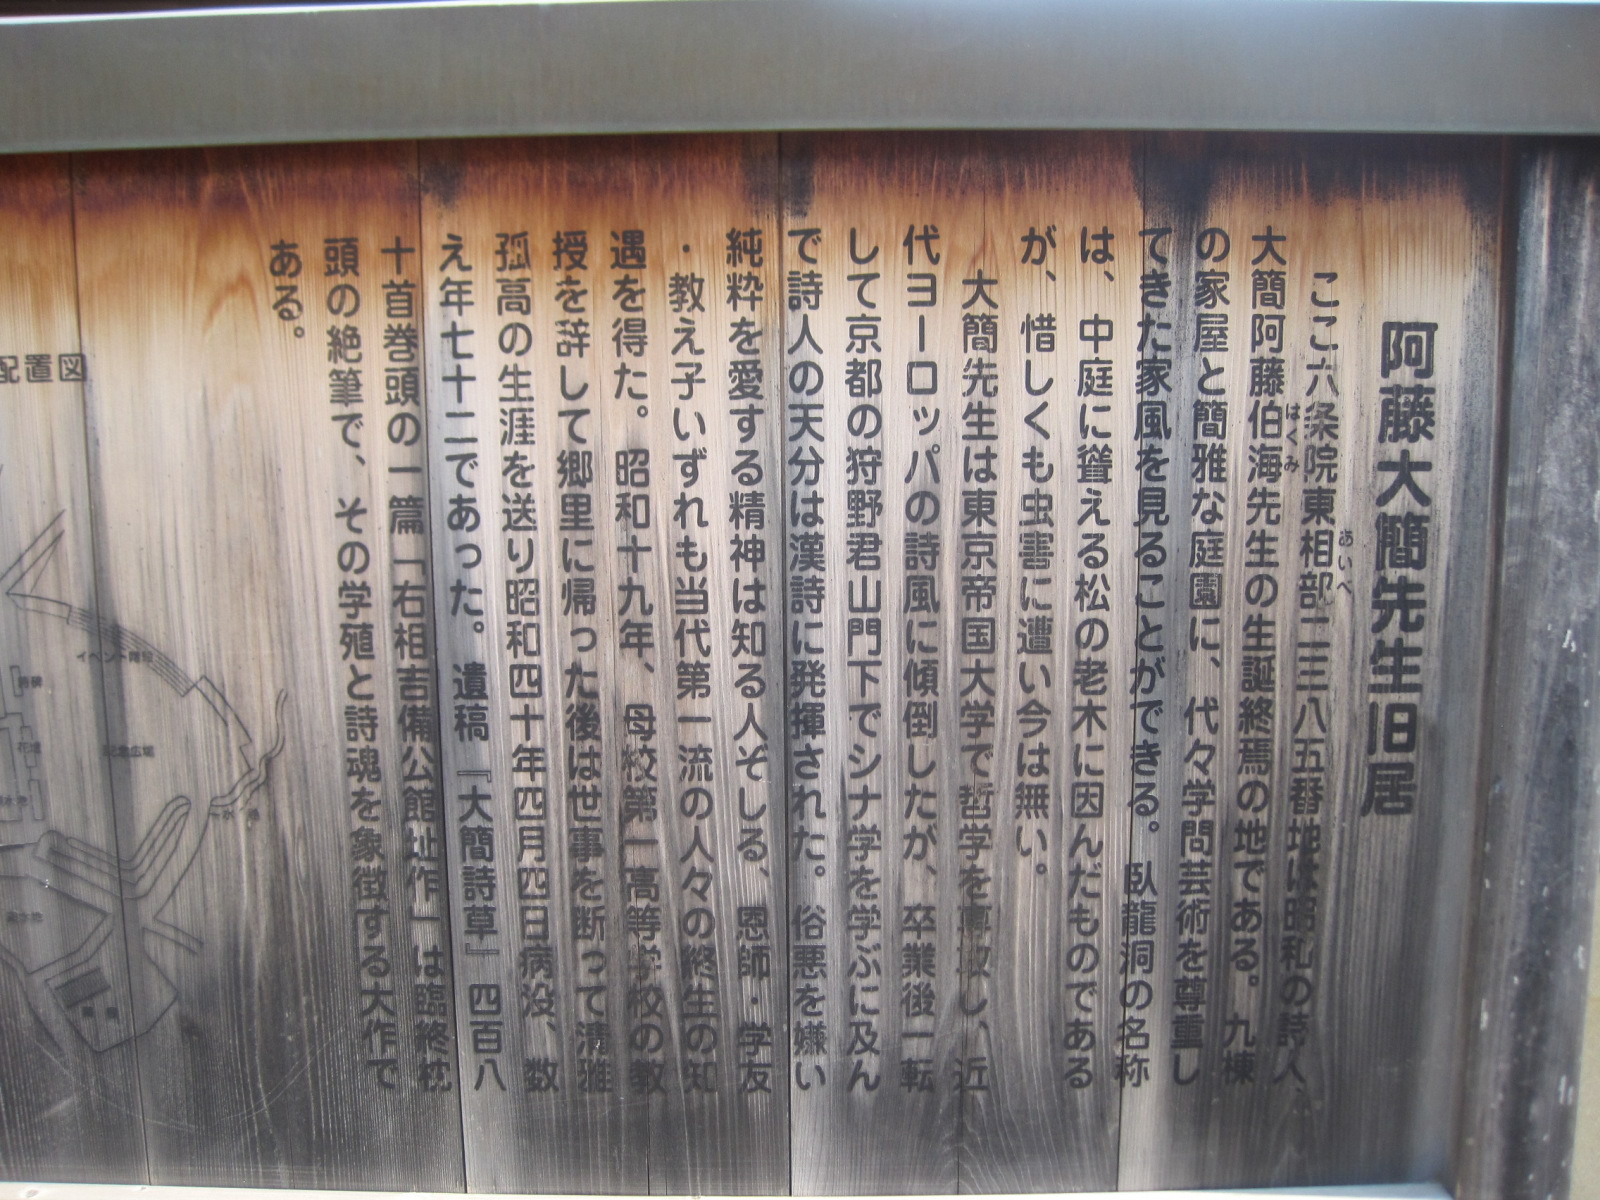 阿藤大簡先生旧居
ここ六条院東相部二三八五番地は昭和の詩人、
あいべ
大簡阿藤伯海先生の生誕終焉の地である。九棟
はくみ
の家屋と簡雅な庭園に、代々学問芸術を尊重し
てきた家風を見ることができる。臥龍洞の名称
は、中庭に聳える松の老木に因んだものである
が、惜しくも虫害に遭い今は無い。
大簡先生は東京帝国大学で哲学を専攻し、近
代ヨーロッパの詩風に傾倒したが、卒業後一転
して京都の狩野君山門下でシナ学を学ぶに及ん
で詩人の天分は漢詩に発揮された。俗悪を嫌い
純粋を愛する精神は知る人ぞしる、恩師・学友
・教え子いずれも当代第一流の人々の終生の知
遇を得た。昭和十九年、母校第一高等学校の教
授を辞して郷里に帰った後は世事を断って清雅
孤高の生涯を送り昭和四十年四月四日病没、数
え年七十二であった。遺稿『大簡詩草』四百八
十首巻頭の一篇「右相吉備公館址作」は臨終枕
頭の絶筆で、その学殖と詩魂を象徴する大作で
ある。
配置図
記念広場